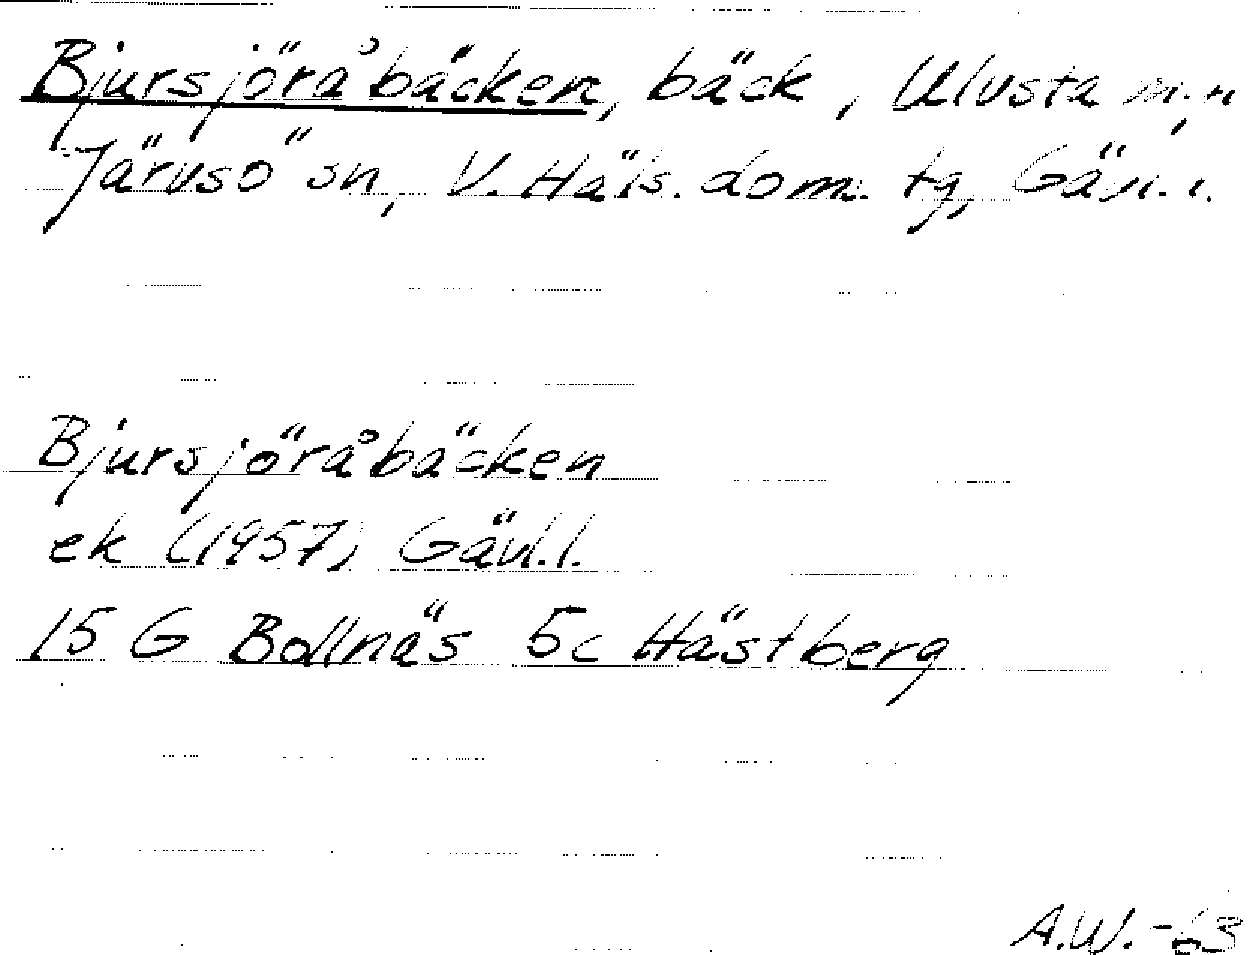 Bjursjöråbäcken, bäck, Ulvsta m.fl
Järvsö sn, V. Häls. dom. tg, Gävl. l.
Bjursjöråbäcken
ek (1957) Gävl.l.
15 G Bollnäs 5c Hästberg
A.W. -63